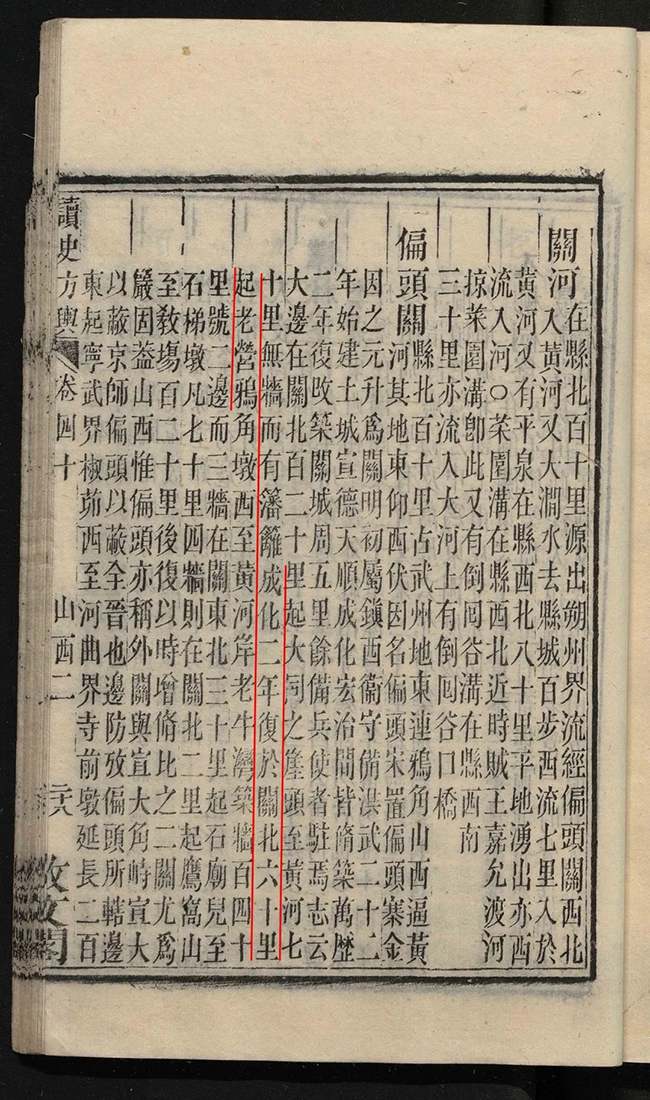 關河在縣北百十里源出朔州界流經偏頭關西北
入黃河又大澗水去縣城百步西流七里入於
黃河又有平泉在縣西北八十里平地湧出亦西
流入河○菜園溝在縣西北近時賊王嘉允渡河
掠菜園溝卽此又有倒囘谷溝在縣西南
三十里亦流入大河上有倒囘谷口橋
偏頭關縣北百十里古武州地東連鴉角山西逼黃
河其地東仰西伏因名偏頭宋置偏頭寨金
因之元升爲關明初屬鎮西衞守備洪武二十二
年始建土城宣德天順成化宏治間皆脩築萬歷
二年復改築關城周五里餘備兵使者駐焉志云
大邊在關北百二十里起大同之崖頭至黃河七
十里無牆而有藩籬成化二年復於關北六十里
起老營鴉角墩西至黃河岸老牛灣築牆百四十
里號二邊而三牆在關東北三十里起石廟兒至
石梯墩凡七十里四牆則在關北二里起鷹窩山
至教塲百二十里後復以時增脩比之二關尤爲
嚴固葢山西惟偏頭亦稱外關與宣大角峙宣大
以蔽京師偏頭以蔽全晉也邊防攷偏頭所轄邊
東起寧武界椒茆西至河曲界寺前墩延長二百
讀史方輿 卷四十 山西二